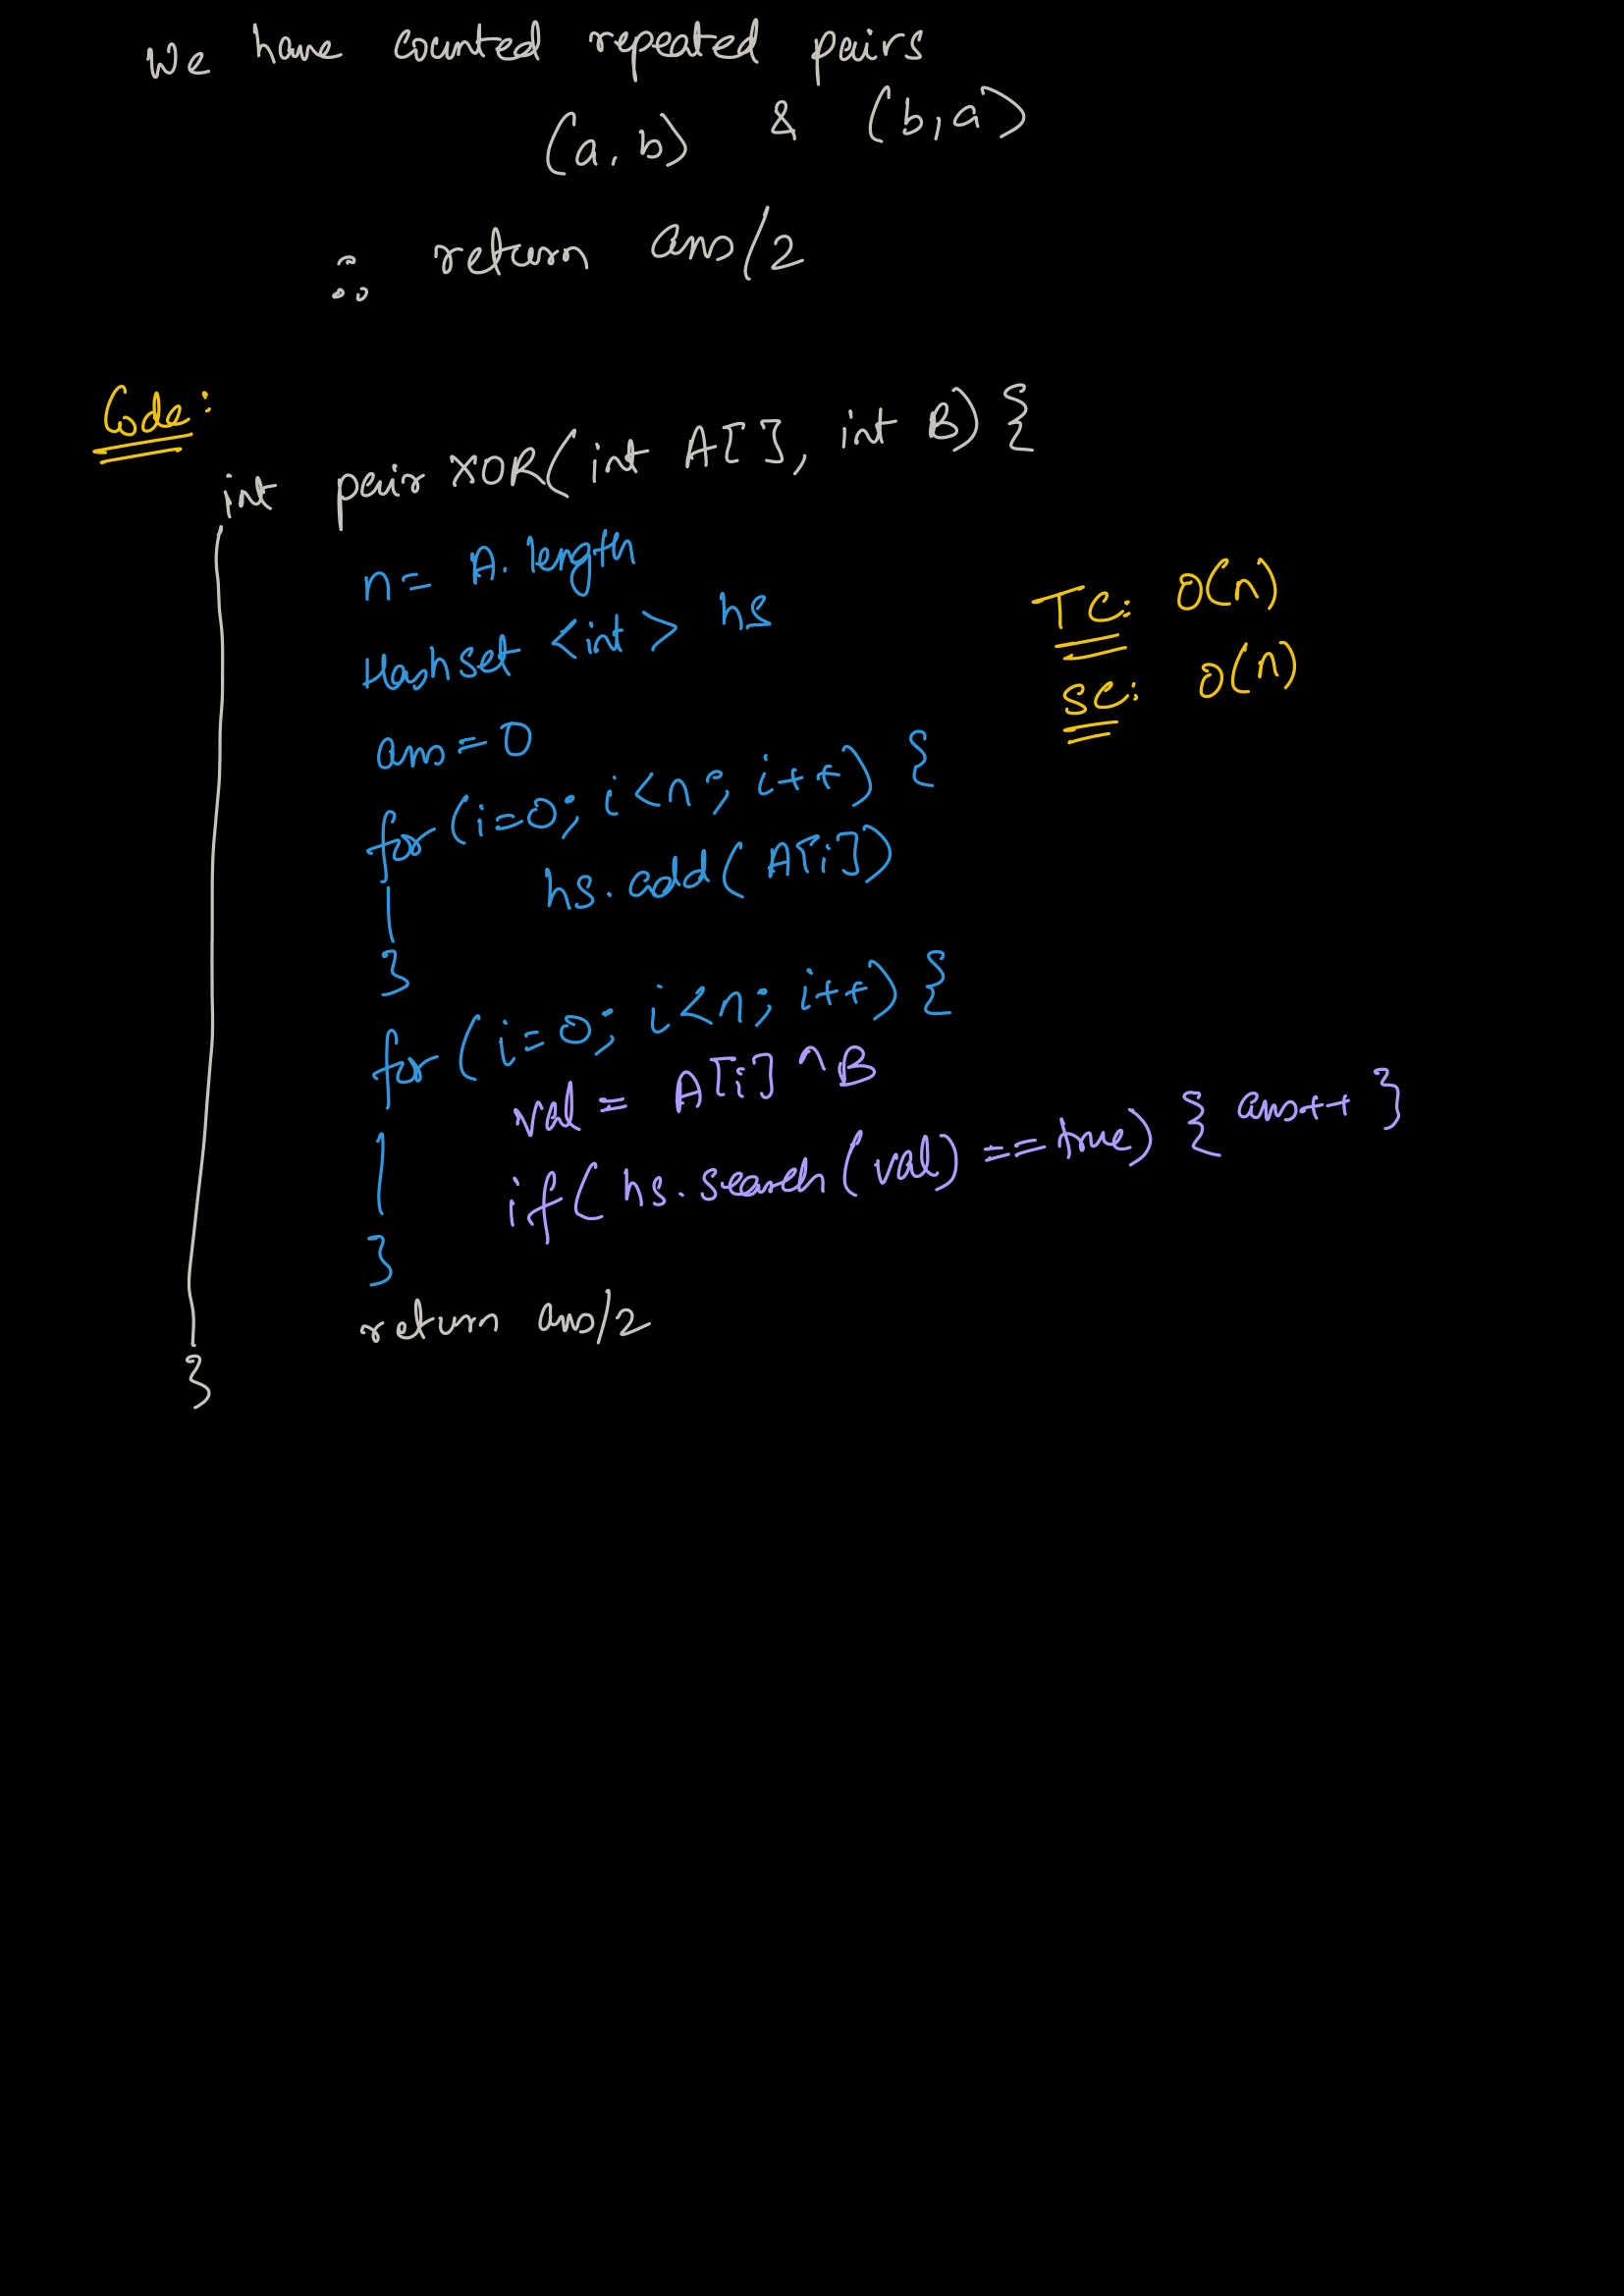 We have counted repeated pairs
(a, b) & (b, a)
∴ return ans/2
Code:
int pair XOR(int A[], int B) {
n = A.length
Hashset <int> hs
TC: O(n)
SC: O(n)
ans = 0
for (i=0; i<n; i++) {
hs.add(A[i])
}
for (i=0; i<n; i++) {
val = A[i] ^ B
if (hs.search(val) == true) { ans++ }
}
return ans/2
}